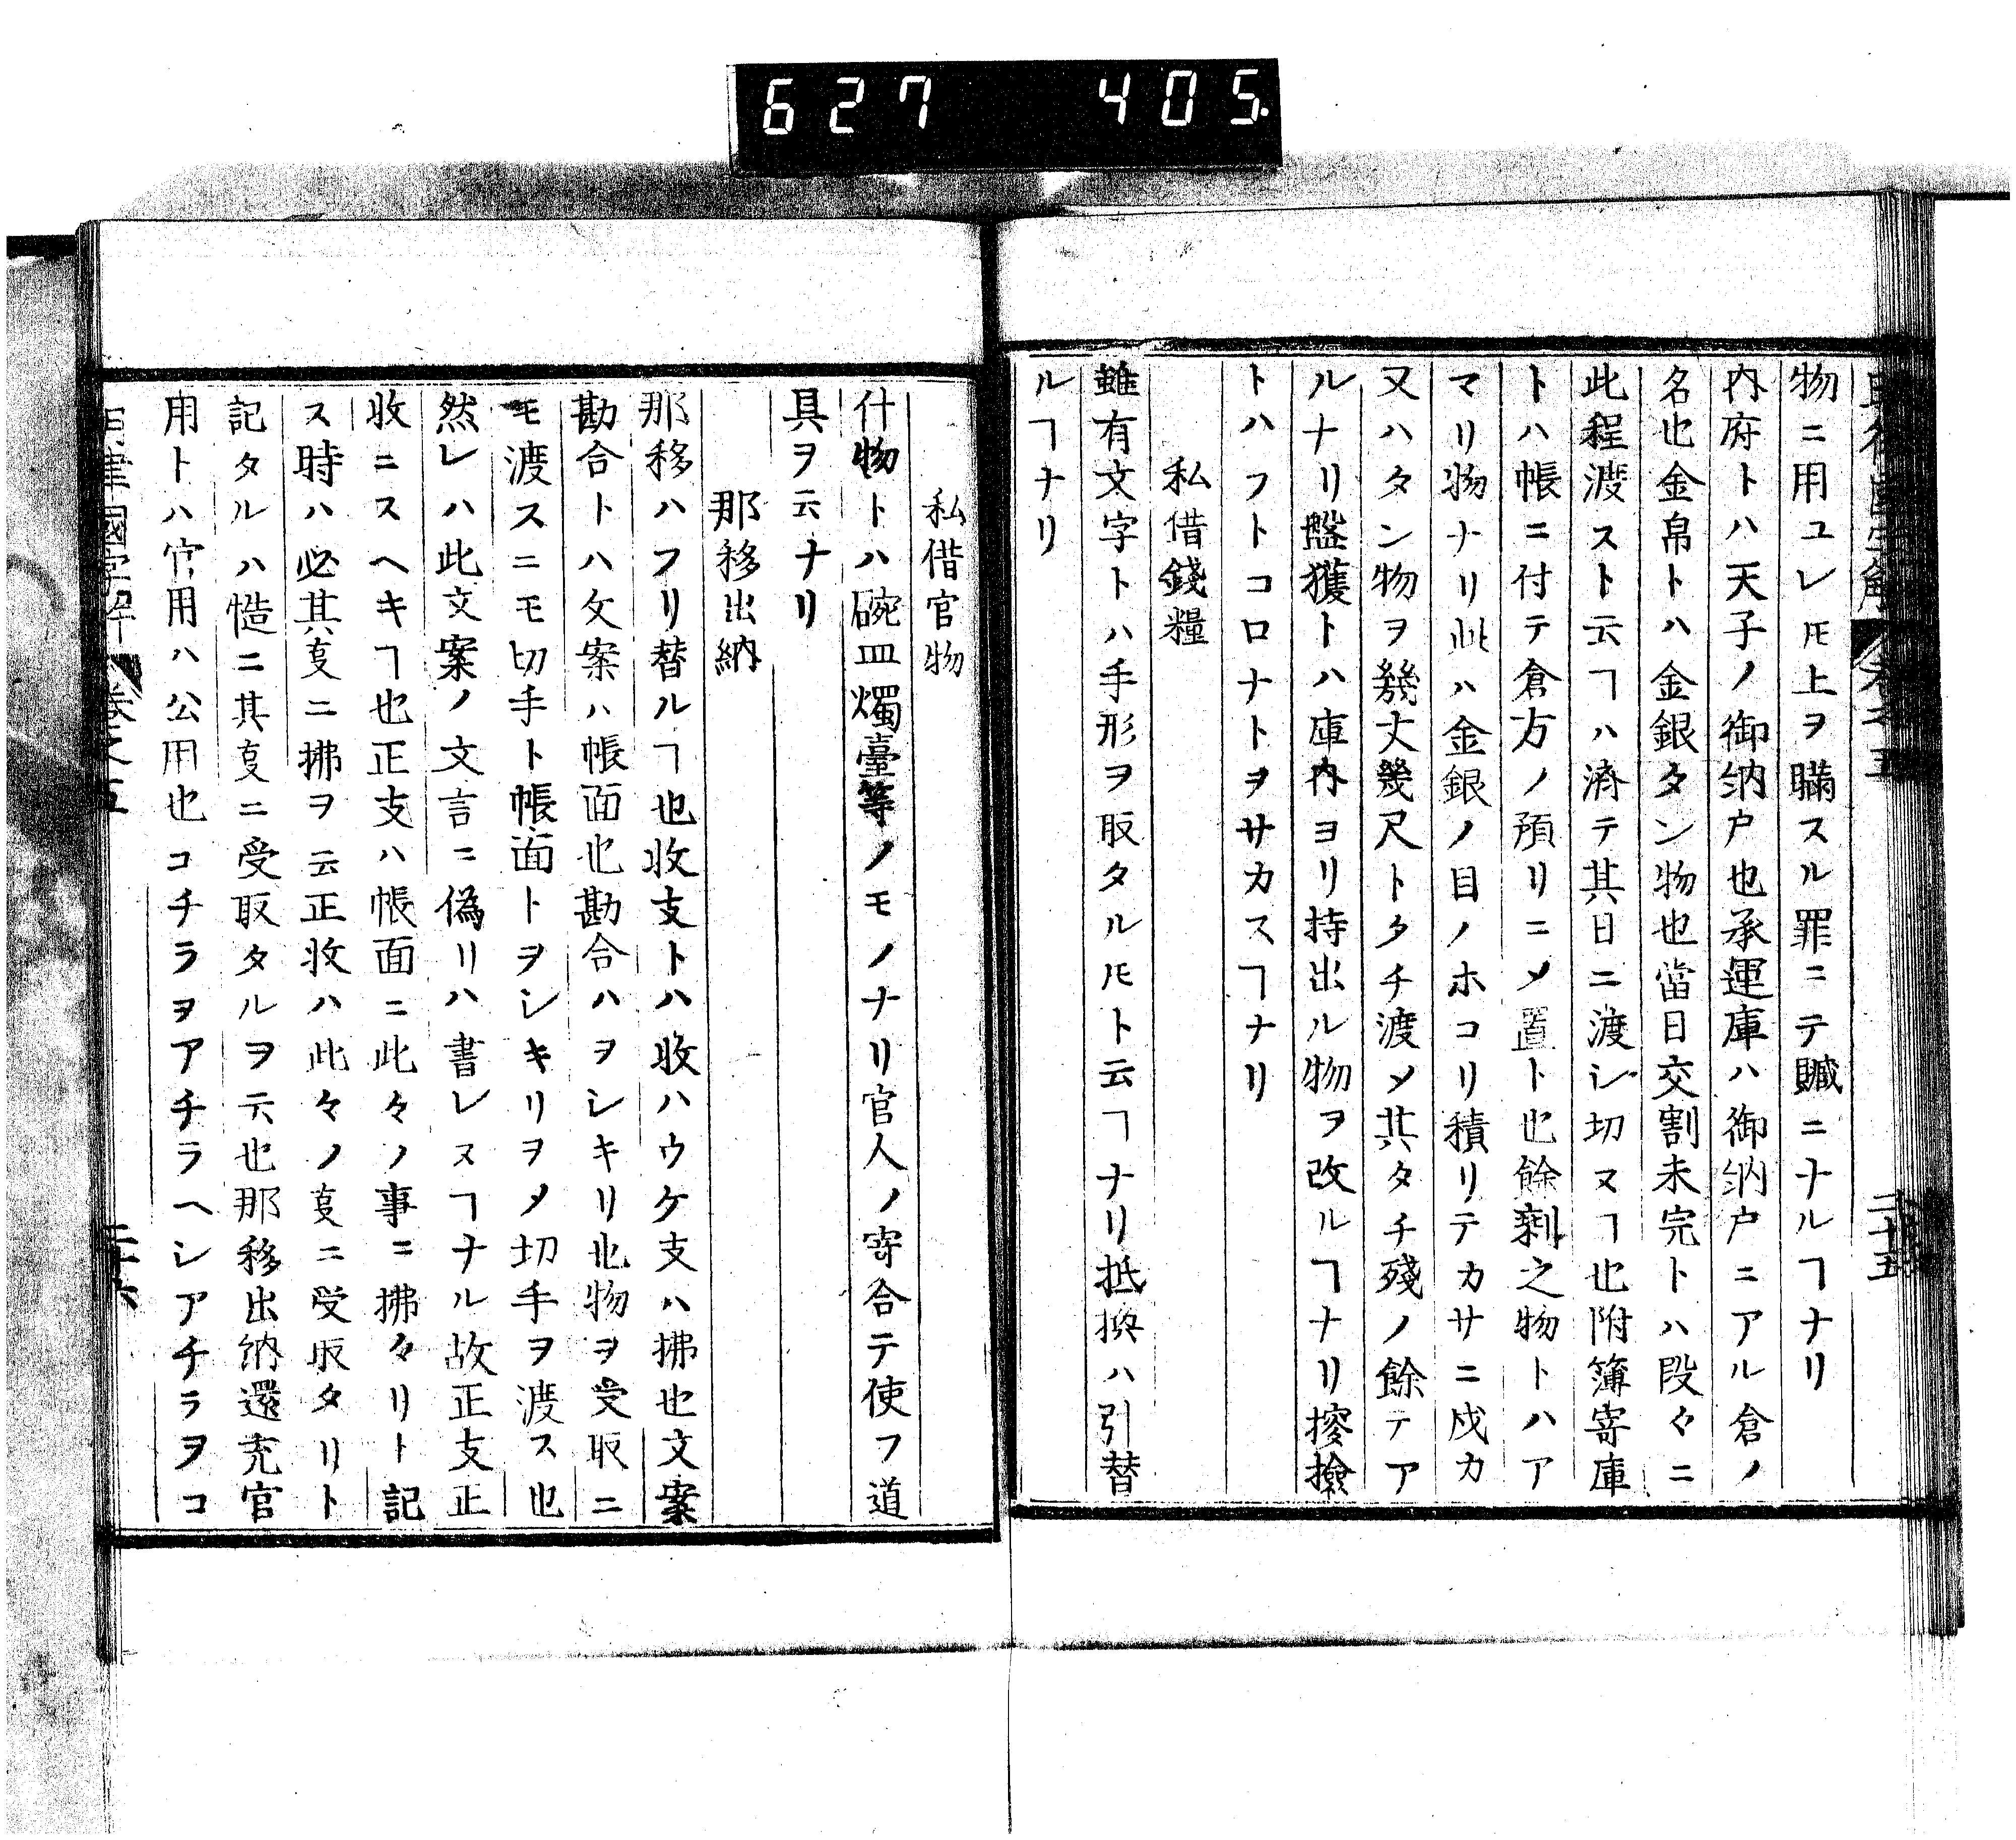 627 405
物ニ用ユレ𪜈上ヲ瞞スル罪ニテ贓ニナルヿナリ
内府トハ天子ノ御納戸也承運庫ハ御納戸ニアル倉ノ
名也金帛トハ金銀タン物也當日交割未完トハ段々ニ
此程渡スト云ヿハ濟テ其日ニ渡シ切ヌヿ也附簿寄庫
トハ帳ニ付テ倉方ノ預リニメ置ト也餘剰之物トハア
マリ物ナリ此ハ金銀ノ目ノホコリ積リテカサニ成カ
又ハタン物ヲ幾丈幾尺トタチ渡メ其タチ殘ノ餘テア
ルナリ盤獲トハ庫内ヨリ持出ル物ヲ改ルヿナリ搜撿
トハフトコロナトヲサカスヿナリ
私借錢糧
雖有文字トハ手形ヲ取タル𪜈ト云ヿナリ抵換ハ引替
ルヿナリ
卷之五
二十五
私借官物
什物トハ碗皿燭臺等ノモノナリ官人ノ寄合テ使フ道
具ヲ云ナリ
那移出納
那移ハフリ替ルヿ也收支トハ收ハウケ支ハ拂也文案
勘合トハ文案ハ帳面也勘合ハヲシキリ也物ヲ受取ニ
モ渡スニモ切手ト帳面トヲシキリヲメ切手ヲ渡ス也
然レハ此文案ノ文言ニ偽リハ書レヌヿナル故正支正
收ニスヘキヿ也正支ハ帳面ニ此々ノ事ニ拂々リト記
ス時ハ必其㕝ニ拂ヲ云正收ハ此々ノ㕝ニ受取タリト
記タルハ慥ニ其㕝ニ受取タルヲ云也那移出納還充官
用トハ官用ハ公用也コチラヲアチラヘシアチラヲコ
律國字解
卷之五
二十六